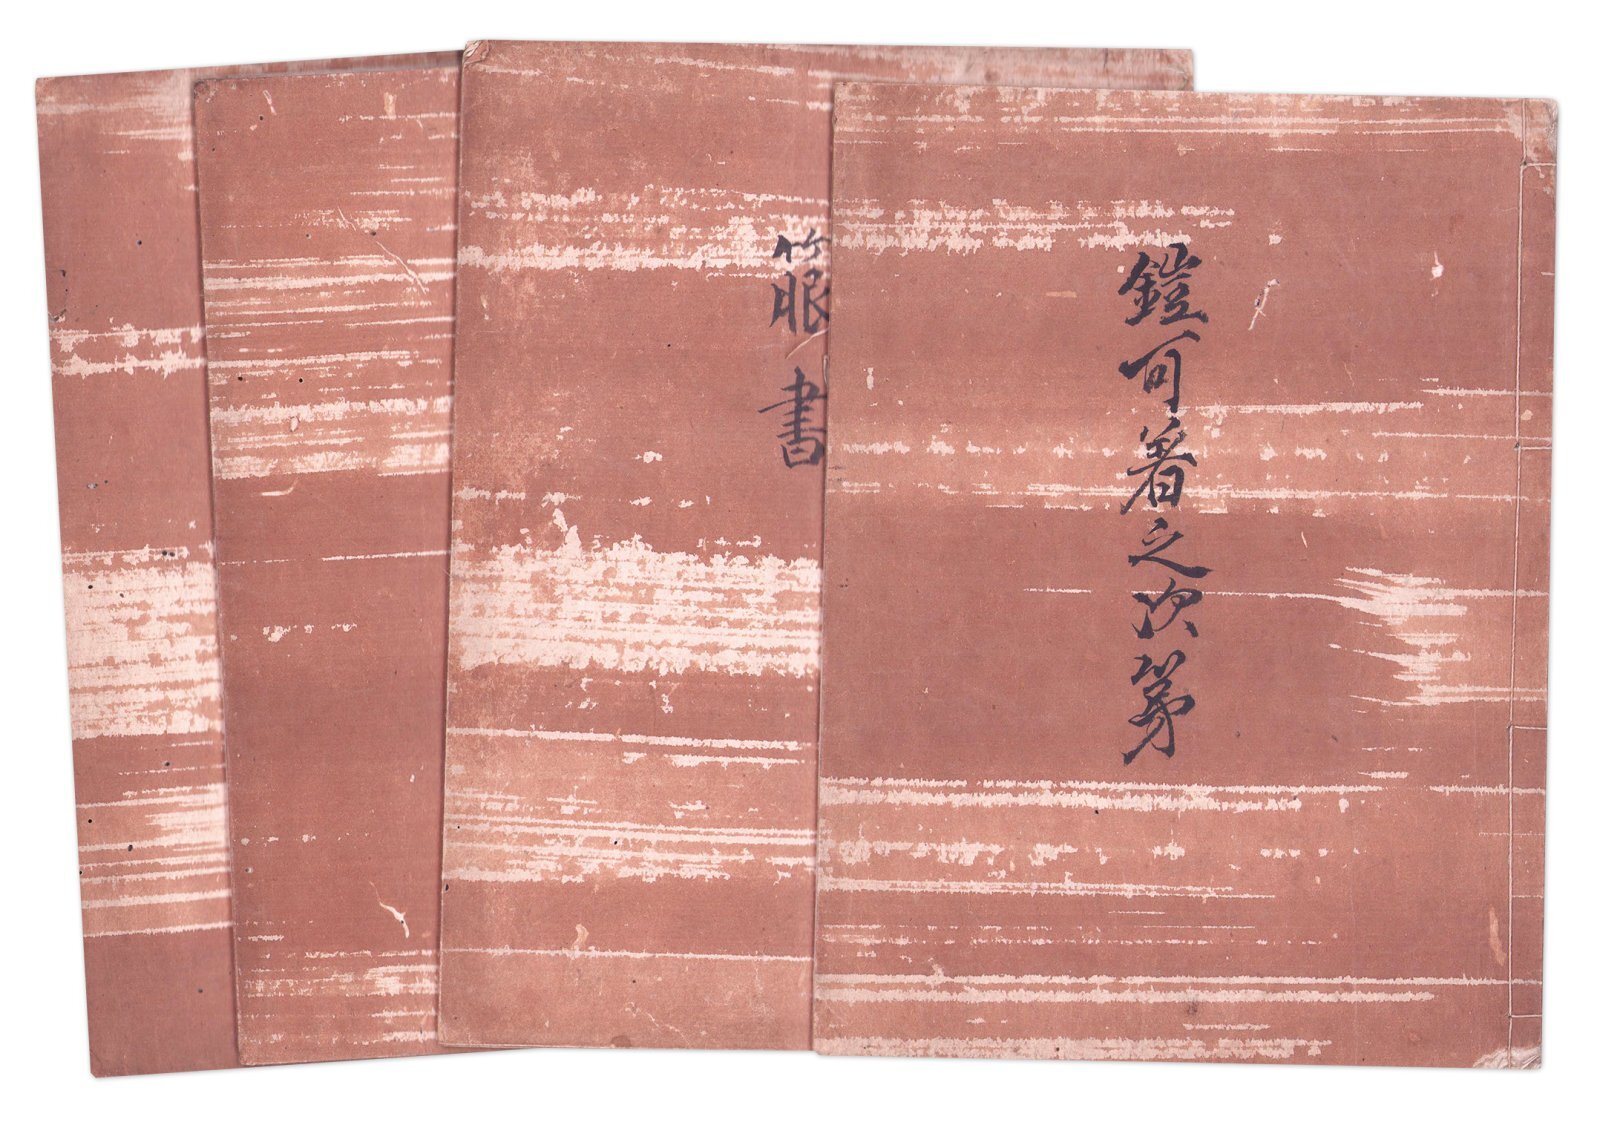 鎧可着之次第
箙書